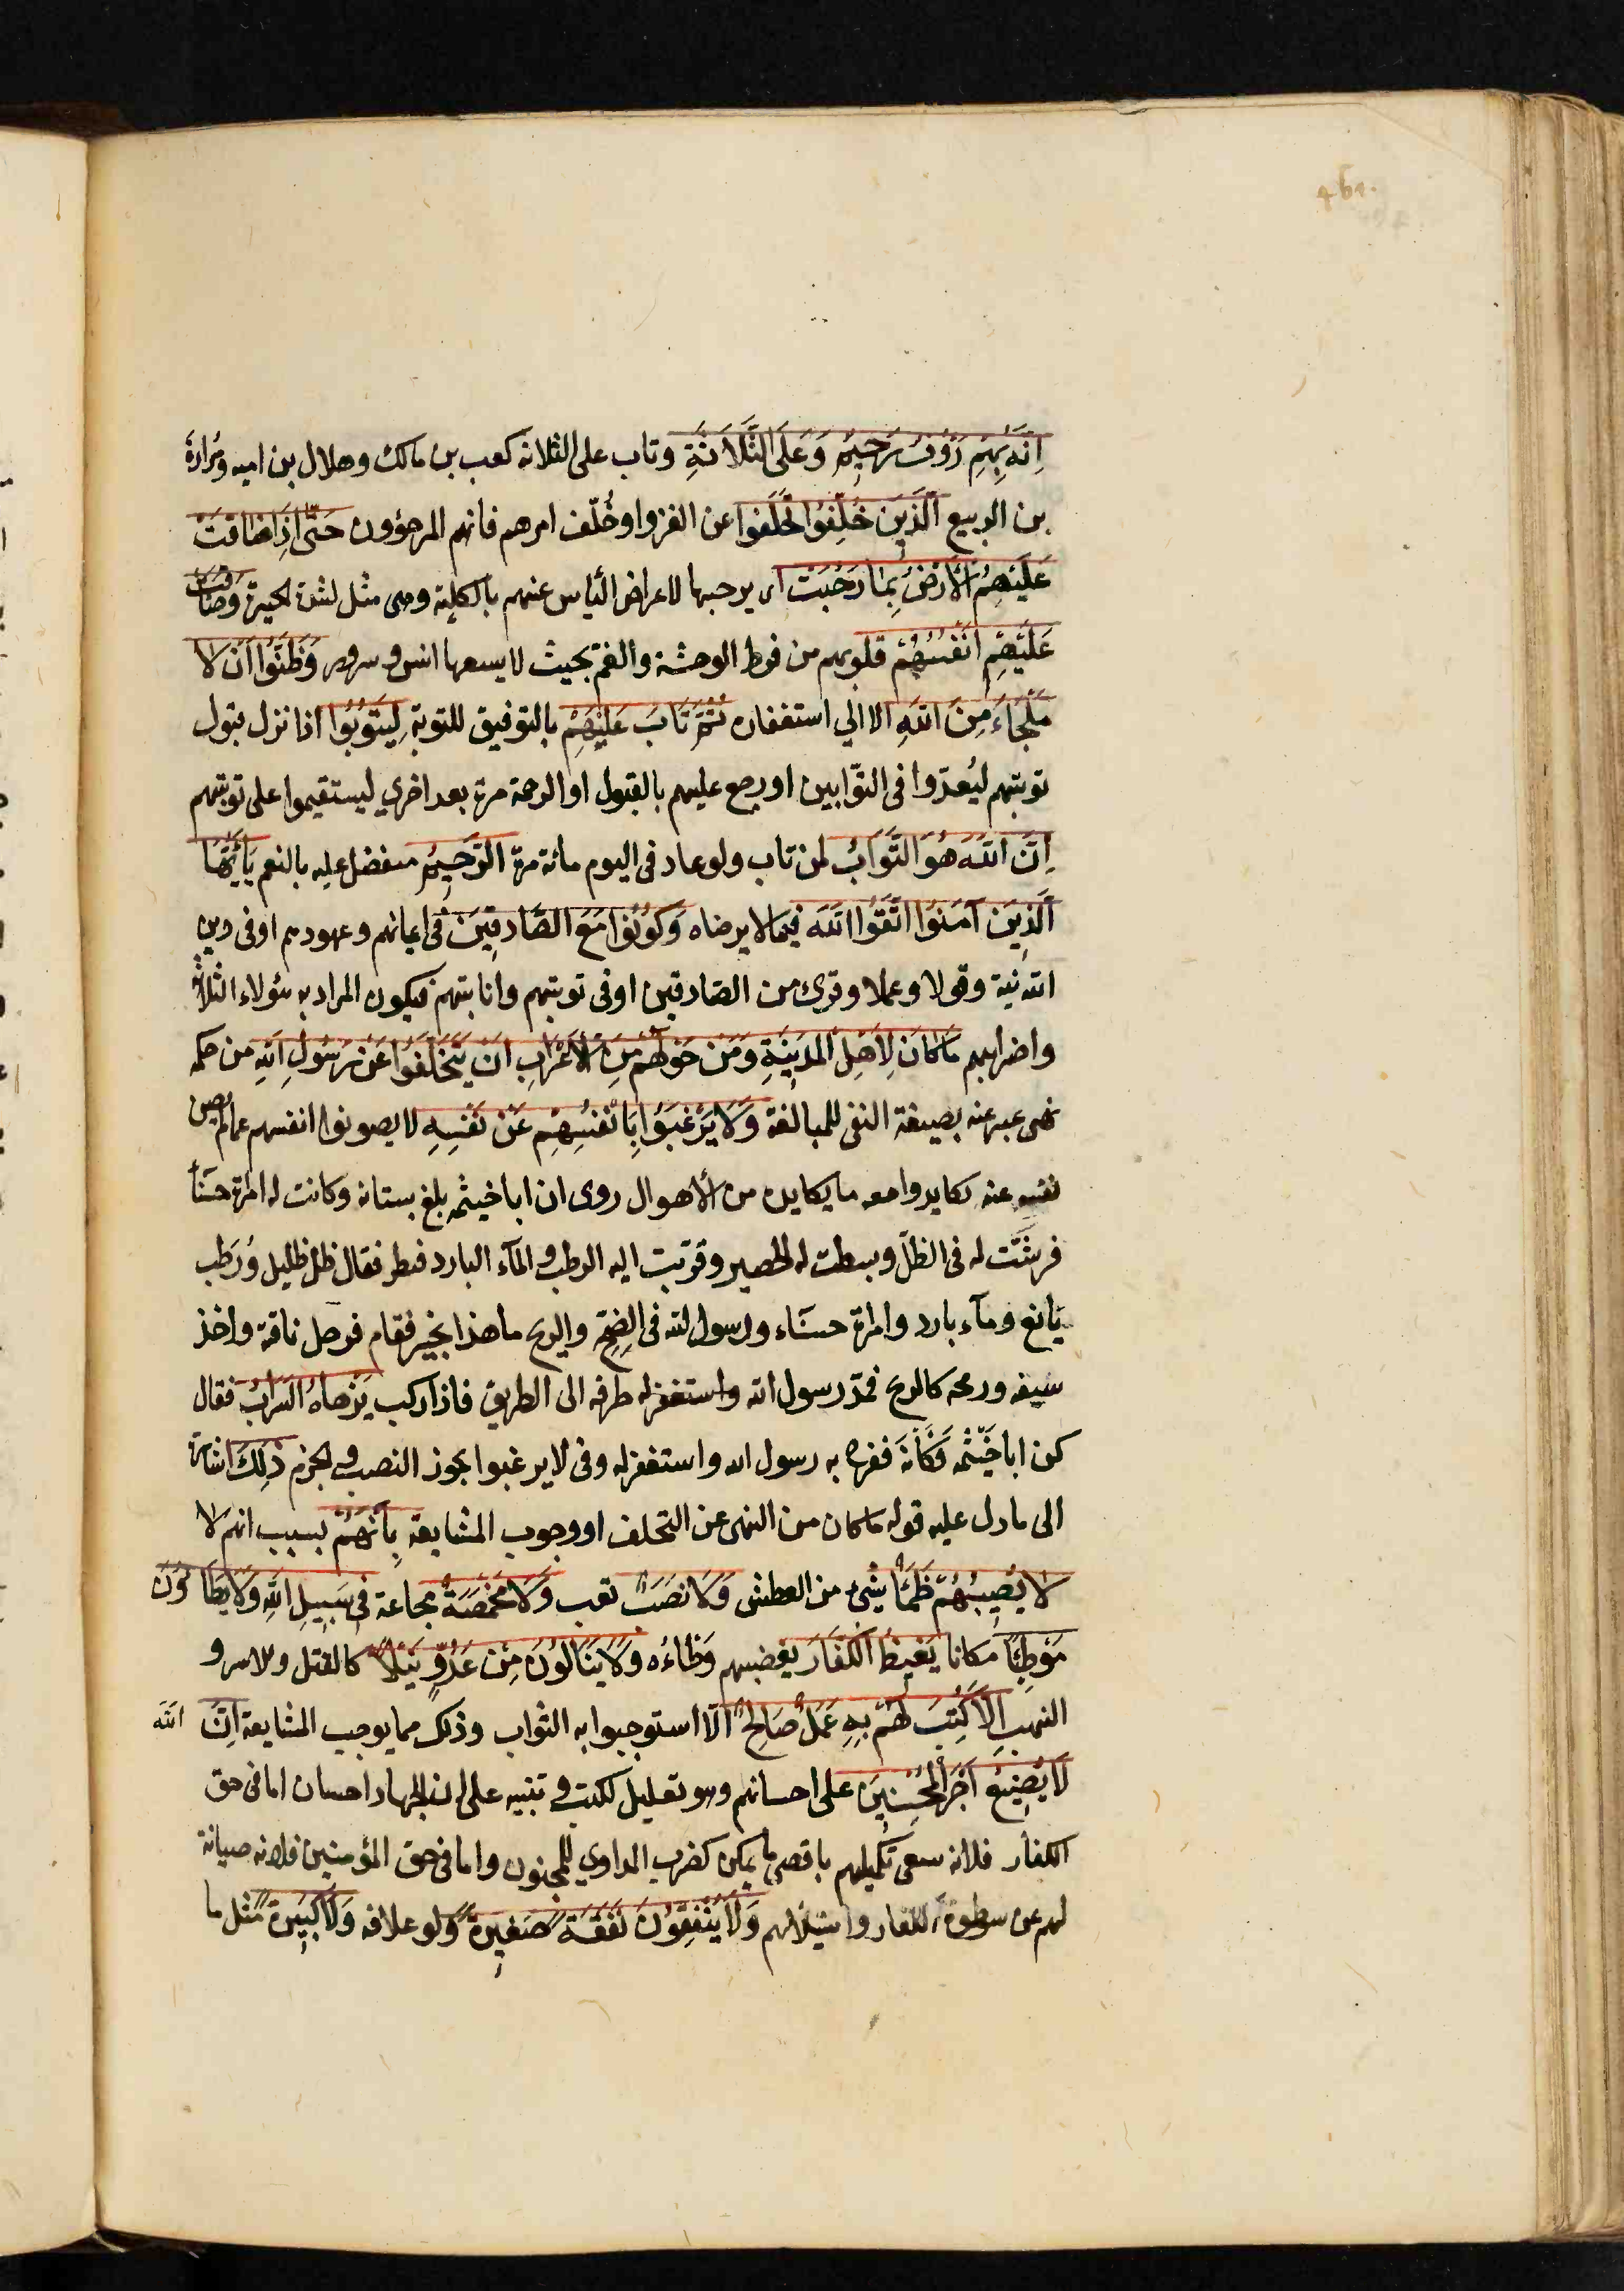 اِنَّهُ بِهِمْ رَؤُفٌ رَحِيمٌ وَعَلَى الثَّلَاثَةِ وتاب على الثلاثة كعب بن مالك وهلال بن اميه ومُرارة
بن الربيع اَلَّذِينَ خُلِّفُوا تخلفوا عن الغزو او خُلّف امرهم فانهم المرجؤون حَتَّى اِذَا ضَاقَتْ
عَلَيْهِمُ الْأَرْضُ بِمَا رَحُبَتْ اى برحبها لاعراض الناس عنهم بالكلية وهى مثل لشدة الحيرة وَضَاقَتْ
عَلَيْهِمْ اَنْفُسُهُمْ قلوبهم من فرط الوحشة والغم بحيث لا يسعها انس وسرور وَظَنُّوا اَنْ لَا
مَلْجَاءَ مِنَ اللّٰهِ الا الي استغفاره ثُمَّ تَابَ عَلَيْهِمْ بالتوفيق للتوبة لِيَتُوبُوا اذا نزل قبول
توبتهم ليُعدّوا فى التوّابين او رجع عليهم بالقبول او الرحمة مرة بعد اخري ليستقيموا على توبتهم
اِنَّ اللّٰهَ هُوَ التَّوَّابُ لمن تاب ولو عاد فى اليوم مائة مرة الرَّحِيمُ متفضل عليه بالنعم يَاأَيُّهَا
اَلَّذِينَ آمَنُوا اتَّقُوا اللّٰهَ فيما لا يرضاه وَكُونُوا مَعَ الصَّادِقِينَ فى ايمانهم وعهودهم او فى دين
الله نية وقولا وعملا وقرئ من الصّادقين او فى توبتهم وانابتهم فيكون المراد به هؤلاء الثلاثة
واضرابهم مَاكَانَ لِاَهْلِ الْمَدِينَةِ وَمَنْ حَوْلَهُمْ مِنَ الْأَعْرَابِ اَنْ يَتَخَلَّفُوا عَنْ رَسُولِ اللّٰهِ من حكمه
نهى عبر عنه بصيغة النفى للمبالغة وَلَا يَرْغَبُوا بِاَنْفُسِهِمْ عَنْ نَفْسِهِ لا يصونوا انفسهم عما لم يصن
نفسه عنه يكابدوا معه ما يكابده من الأهوال روى ان ابا خيثمه بلغ بستانه وكانت له امرة حسنآ
فرشَّت له فى الظلّ وبسطت له الحصير وقرّبت اليه الرطب والمآء البارد فنظر فقال ظل ظليل ورَطب
يَانع ومآء بارد وامرة حسنَاء ورسول الله فى الضِحّ والريح ما هذا بخير فقام فرحل ناقة واخذ
سيفه ورمحه كالريح فمدّ رسول الله واستغفرله طرفه الى الطريق فاذا راكب يَزهاهُ السَرابُ فقال
كن ابا خَيْثمه فَكَانَهُ ففرح به رسول الله واستغفرله وفى لا يرغبوا يجوز النصب والجزم ذٰلِكَ اشارة
الى ما دل عليه قوله ما كان من النهى عن التخلف او وجوب المشايعة بِاَنَّهُمْ بسبب انهم لا
لَا يُصِيبُهُمْ ظَمَأٌ شئ من العطش وَلَا نَصَبٌ تعب وَلَا مَخْمَصَةٌ مجاعة فِى سَبِيلِ اللّٰهِ وَلَا يَطَاؤُنَ
مَوْطِئًا مكانا يَغِيظُ الْكُفَّارَ يغضبهم وَطاءُه وَلَا يَنَالُونَ مِنْ عَدُوٍّ نَيْلًا كالقتل والاسر و
النهب اِلَّا كُتِبَ لَهُمْ بِهِ عَمَلٌ صَالِحٌ الّا استوجبوا به الثواب وذلك مما يوجب المشايعة اِنَّ اللّٰه
لَا يُضِيعُ اَجْرَ الْمُحْسِنِينَ على احسانهم وهو تعليل لكتب و تنبيه على ان الجهاد احسان اما فى حق
الكفار فلانه سعى تكميلهم باقصى ما يمكن كضرب المداوي للمجنون واما فى حق المؤمنين فلانه صيانة
لهم عن سطوة الكفار واستيلائهم وَلَا يُنْفِقُونَ نَفَقَةً صَغِيرَةً ولو علاقه وَلَا كَبِيرَةً مثل ما